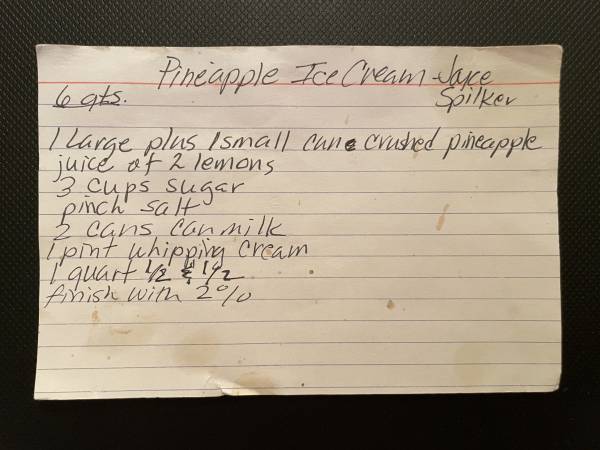 Pineapple Ice Cream - Joyce
6 qts. Spilker
1 Large plus 1 small can crushed pineapple
juice of 2 lemons
3 cups sugar
pinch salt
2 cans can milk
1 pint whipping cream
1 quart 1/2 & 1/2
finish with 2%